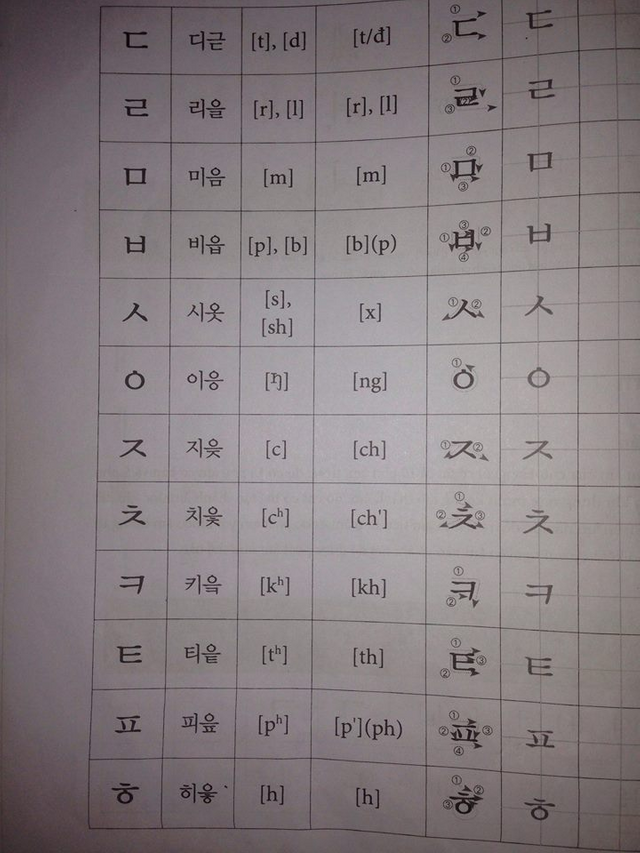 ㄷ 디귿 [t], [d] [t/đ] ① ② ㄷ ㄷ
ㄹ 리을 [r], [l] [r], [l] ① ② ③ ㄹ ㄹ
ㅁ 미음 [m] [m] ① ② ③ ㅁ ㅁ
ㅂ 비읍 [p], [b] [b](p) ① ② ③ ④ ㅂ ㅂ
ㅅ 시옷 [s], [sh] [x] ① ② ㅅ ㅅ
ㅇ 이응 [ŋ] [ng] ① ㅇ ㅇ
ㅈ 지읒 [c] [ch] ① ② ㅈ ㅈ
ㅊ 치읓 [cʰ] [ch'] ① ② ③ ㅊ ㅊ
ㅋ 키읔 [kʰ] [kh] ① ② ㅋ ㅋ
ㅌ 티읕 [tʰ] [th] ① ② ③ ㅌ ㅌ
ㅍ 피읖 [pʰ] [p'](ph) ① ② ③ ④ ㅍ ㅍ
ㅎ 히읗 [h] [h] ① ② ③ ㅎ ㅎ